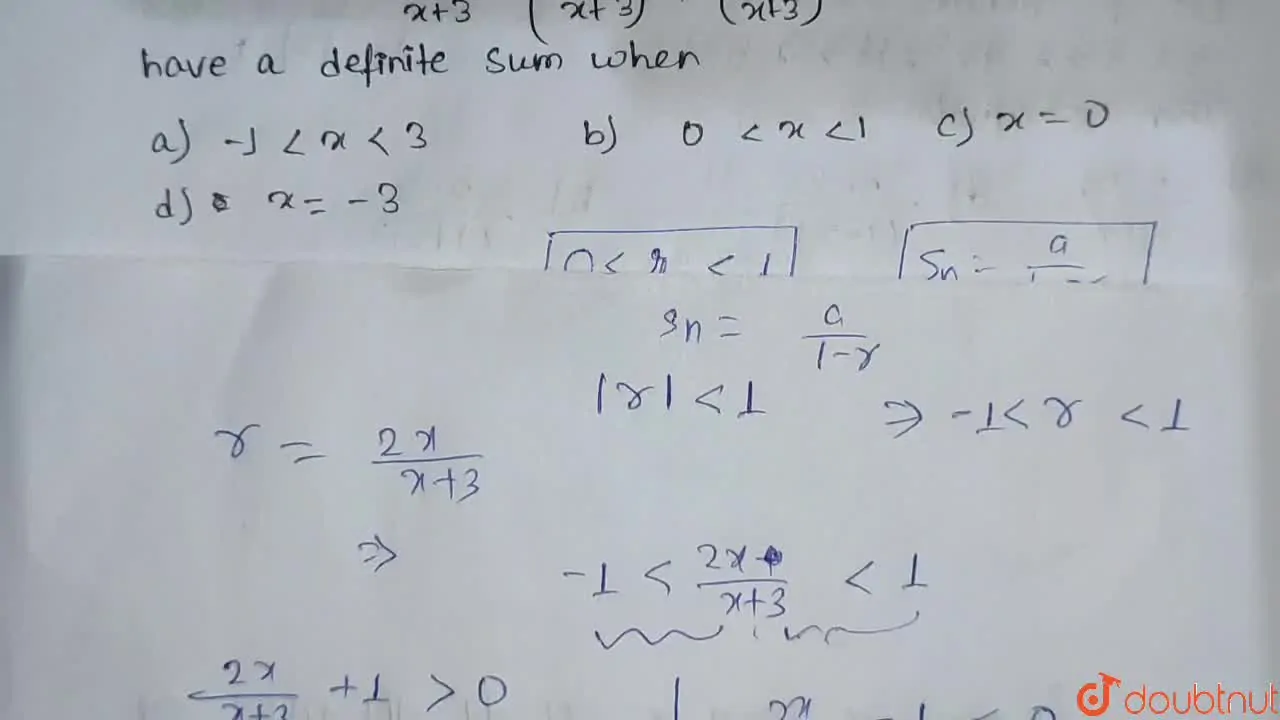 x+3 (x+3) (x+3)
have a definite sum when
a) -1 < x < 3 b) 0 < x < 1 c) x = 0
d) x = -3
0 < r < 1 Sn = a
Sn = a/1-r
|r| < 1 ⇒ -1 < r < 1
r = 2x/x+3
⇒ -1 < 2x/x+3 < 1
2x/x+3 + 1 > 0 2x - 1 < 0
doubtnut